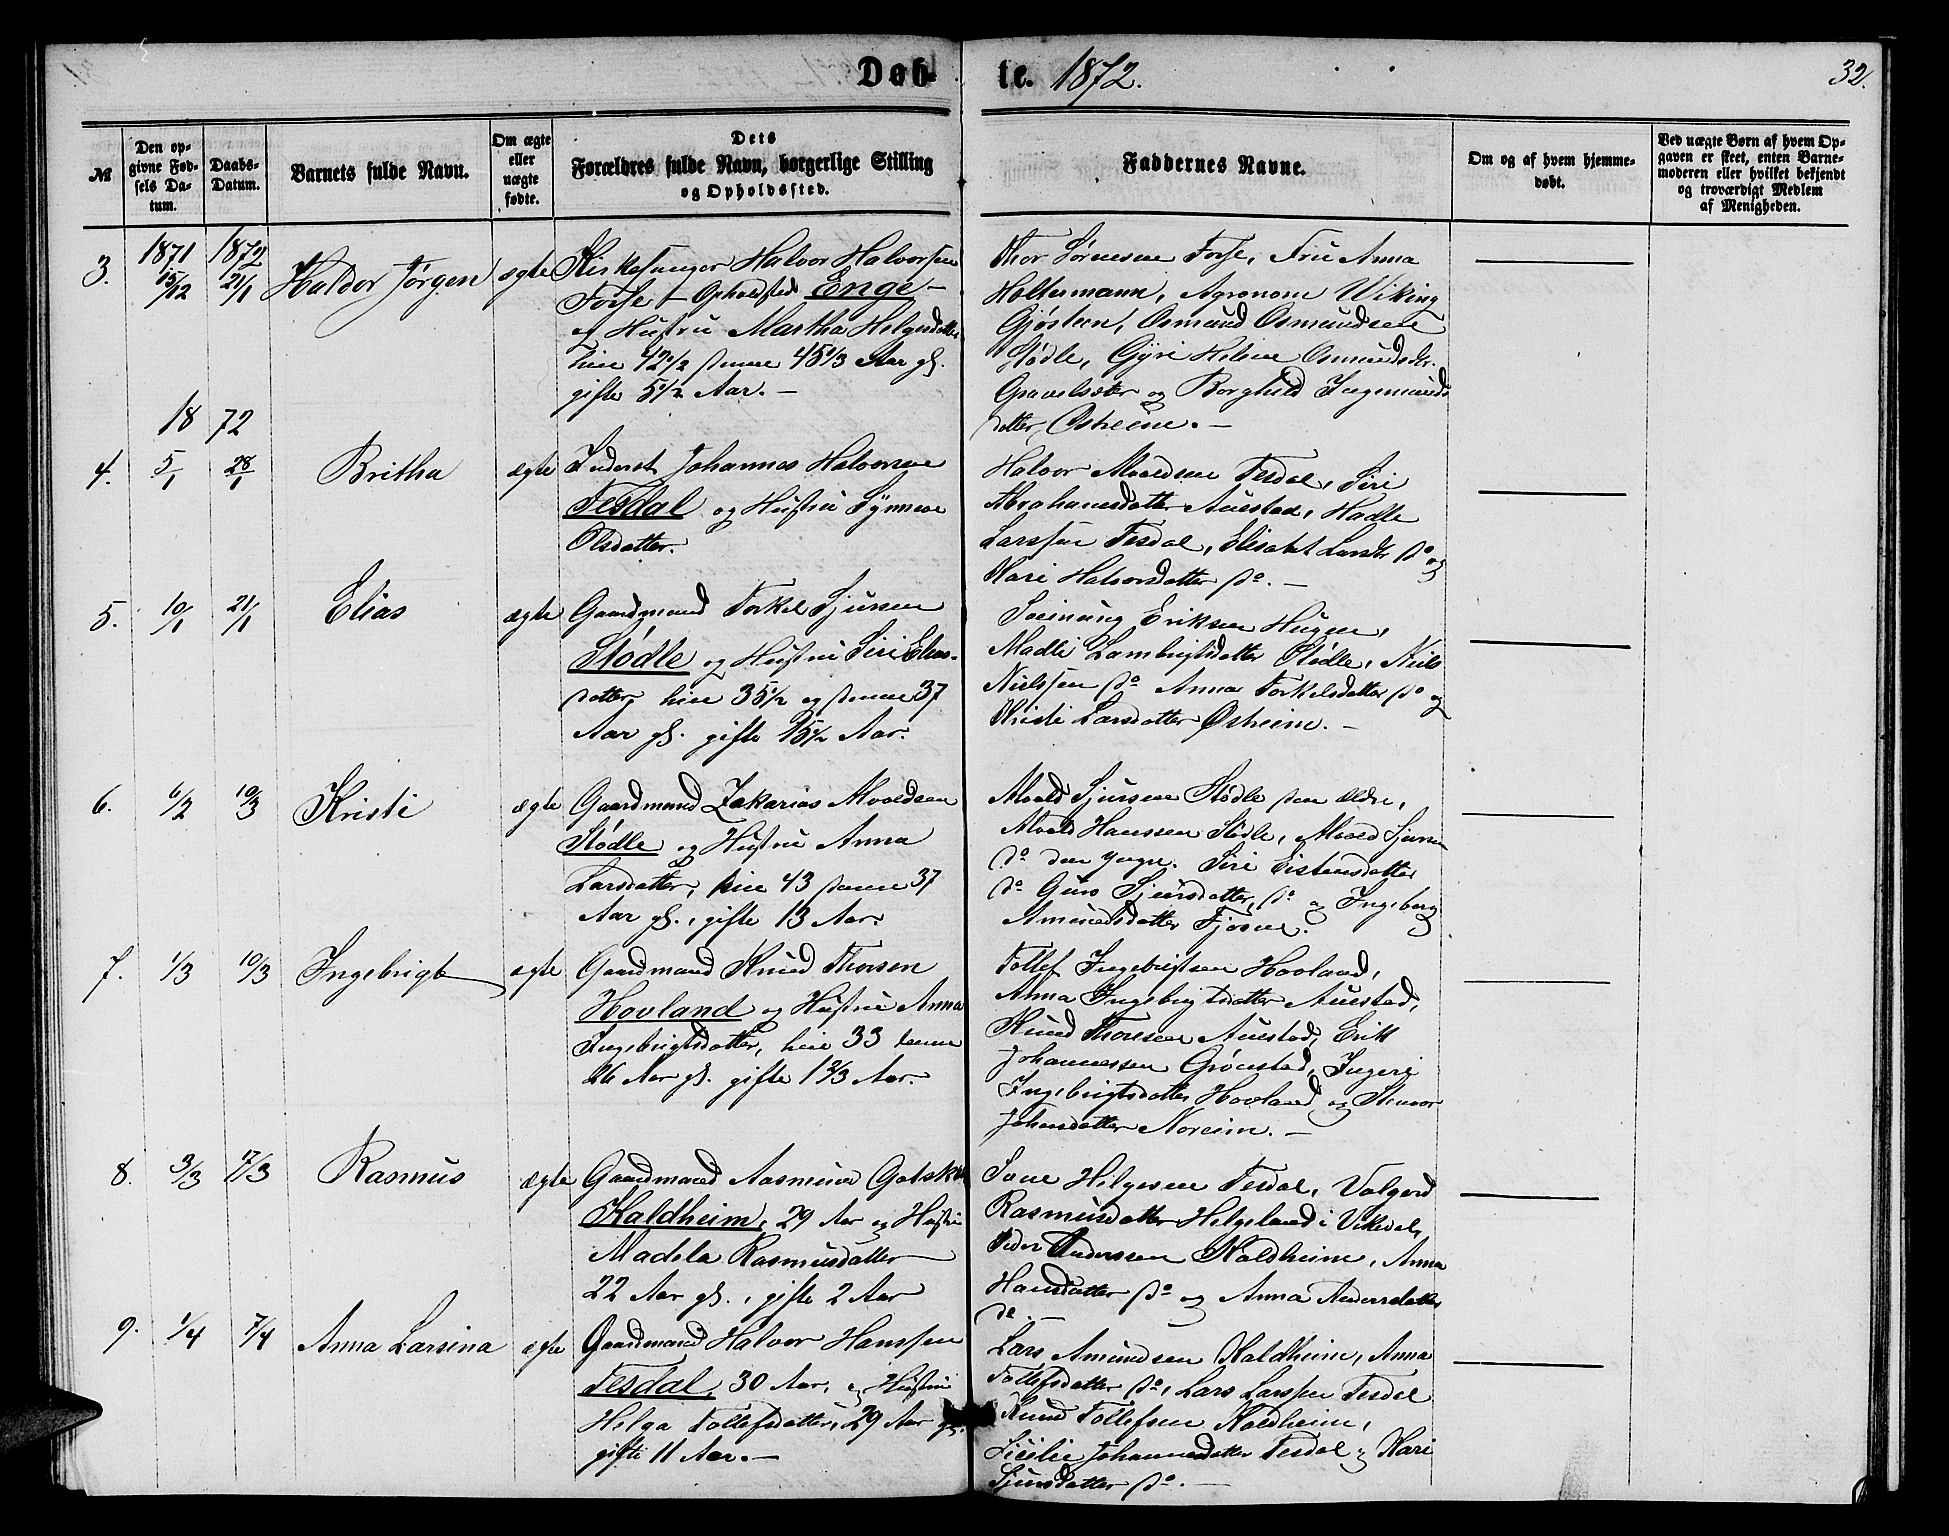 Døb-te. 1872. 32.
№
Den opgivne Fødsels Datum.
Daabs-Datum.
Barnets fulde Navn.
Om ægte eller uægte fødte.
Dets Forældres fulde Navn, borgerlige Stilling og Opholdssted.
Faddernes Navne.
Om og af hvem hjemmedøbt.
Ved uægte Børn af hvem Opgaven er skeet, enten Barnemoderen eller hvilket bekjendt og troværdigt Medlem af Menigheden.
1871 1872
3. 15/12 21/1 Haldor Jørgen ægte
Kirkesanger Halvor Halvorsen
Fosse Opholdsted Enge
og Hustru Martha Helgesdatter
hin 42 1/2 denne 45 1/3 Aar gl.
gifte 5 1/2 Aar. —
Thor Sørensen Fosse, Fru Anna
Holtermann, Agronom Wiking
Gjøsteen, Osmund Osmundsen
Stødle, Gyri Helene Osmundsdtr.
Gravelsæter og Borghild Ingemunds
datter Osheim. —
1872
4. 5/1 28/1 Britha ægte
Inderst Johannes Halvorsen
Tesdal og Hustru Synneve
Olsdatter.
Halvor Alvaldsen Tesdal, Siri
Abrahamsdatter Auestad, Hadle
Larssen Tesdal, Elisabet Larsdtr do og
Kari Halvorsdatter do. —
5. 10/1 21/1 Elias ægte
Gaardmand Torkel Sjursen
Stødle og Hustru Siri Elias-
datter, hin 35 1/2 og denne 37
Aar gl. gifte 15 1/2 Aar.
Sveinung Eriksen Hugen,
Madli Lambrigtsdatter Stødle, Niels
Nielssen do Anna Torkelsdatter do og
Kristi Larsdatter Østreim. —
6. 6/2 10/3 Kristi ægte
Gaardmand Zakarias Alvaldsen
Stødle og Hustru Anna
Larsdatter, hin 43 denne 37
Aar gl., gifte 13 Aar.
Alvald Sjursen Stødle den ældre,
Alvald Hanssen Stødle, Alvald Sjursen
do den yngre. Siri Eistensdatter
do Guro Sjursdatter do og Ingeborg
Amundsdatter Fjøsne.
7. 1/3 10/3 Ingebrigt ægte
Gaardmand Knud Thorsen
Hovland og Hustru Anna
Ingebrigtsdatter, hin 33 denne
26 Aar gl. gifte 1 2/3 Aar.
Tollef Ingebrigtsen Hovland,
Anna Ingebrigtsdatter Auestad,
Knud Thoresen Auestad, Erik
Johannessen Grønstad, Ingeri
Ingebrigtsdatter Hovland og Steinvor
Johansdatter Noreim. —
8. 3/3 17/3 Rasmus ægte
Gaardmand Aasmund
Kaldheim, 29 Aar og Hustru
Madela Rasmusdatter
22 Aar gl., gifte 2 Aar
Helgesen Tesdal, Valgerd
Rasmusdatter Helgeland i Vikedal,
Peder Anderssen Kaldheim, Anna
Hansdatter do og Anna Andersdatter
do
9. 1/4 7/4 Anna Larsina ægte
Gaardmand Halvor Hanssen
Tesdal, 30 Aar, og Hustru
Helga Tollefsdatter, 29 Aar gl.
gifte 11 Aar. —
Lars Amundsen Kaldheim, Anna
Tollefsdatter do, Lars Larssen Tesdal
Knud Tollefsen Kaldheim,
Sicilie Johannesdatter Tesdal og Kari
Sjursdatter do. —